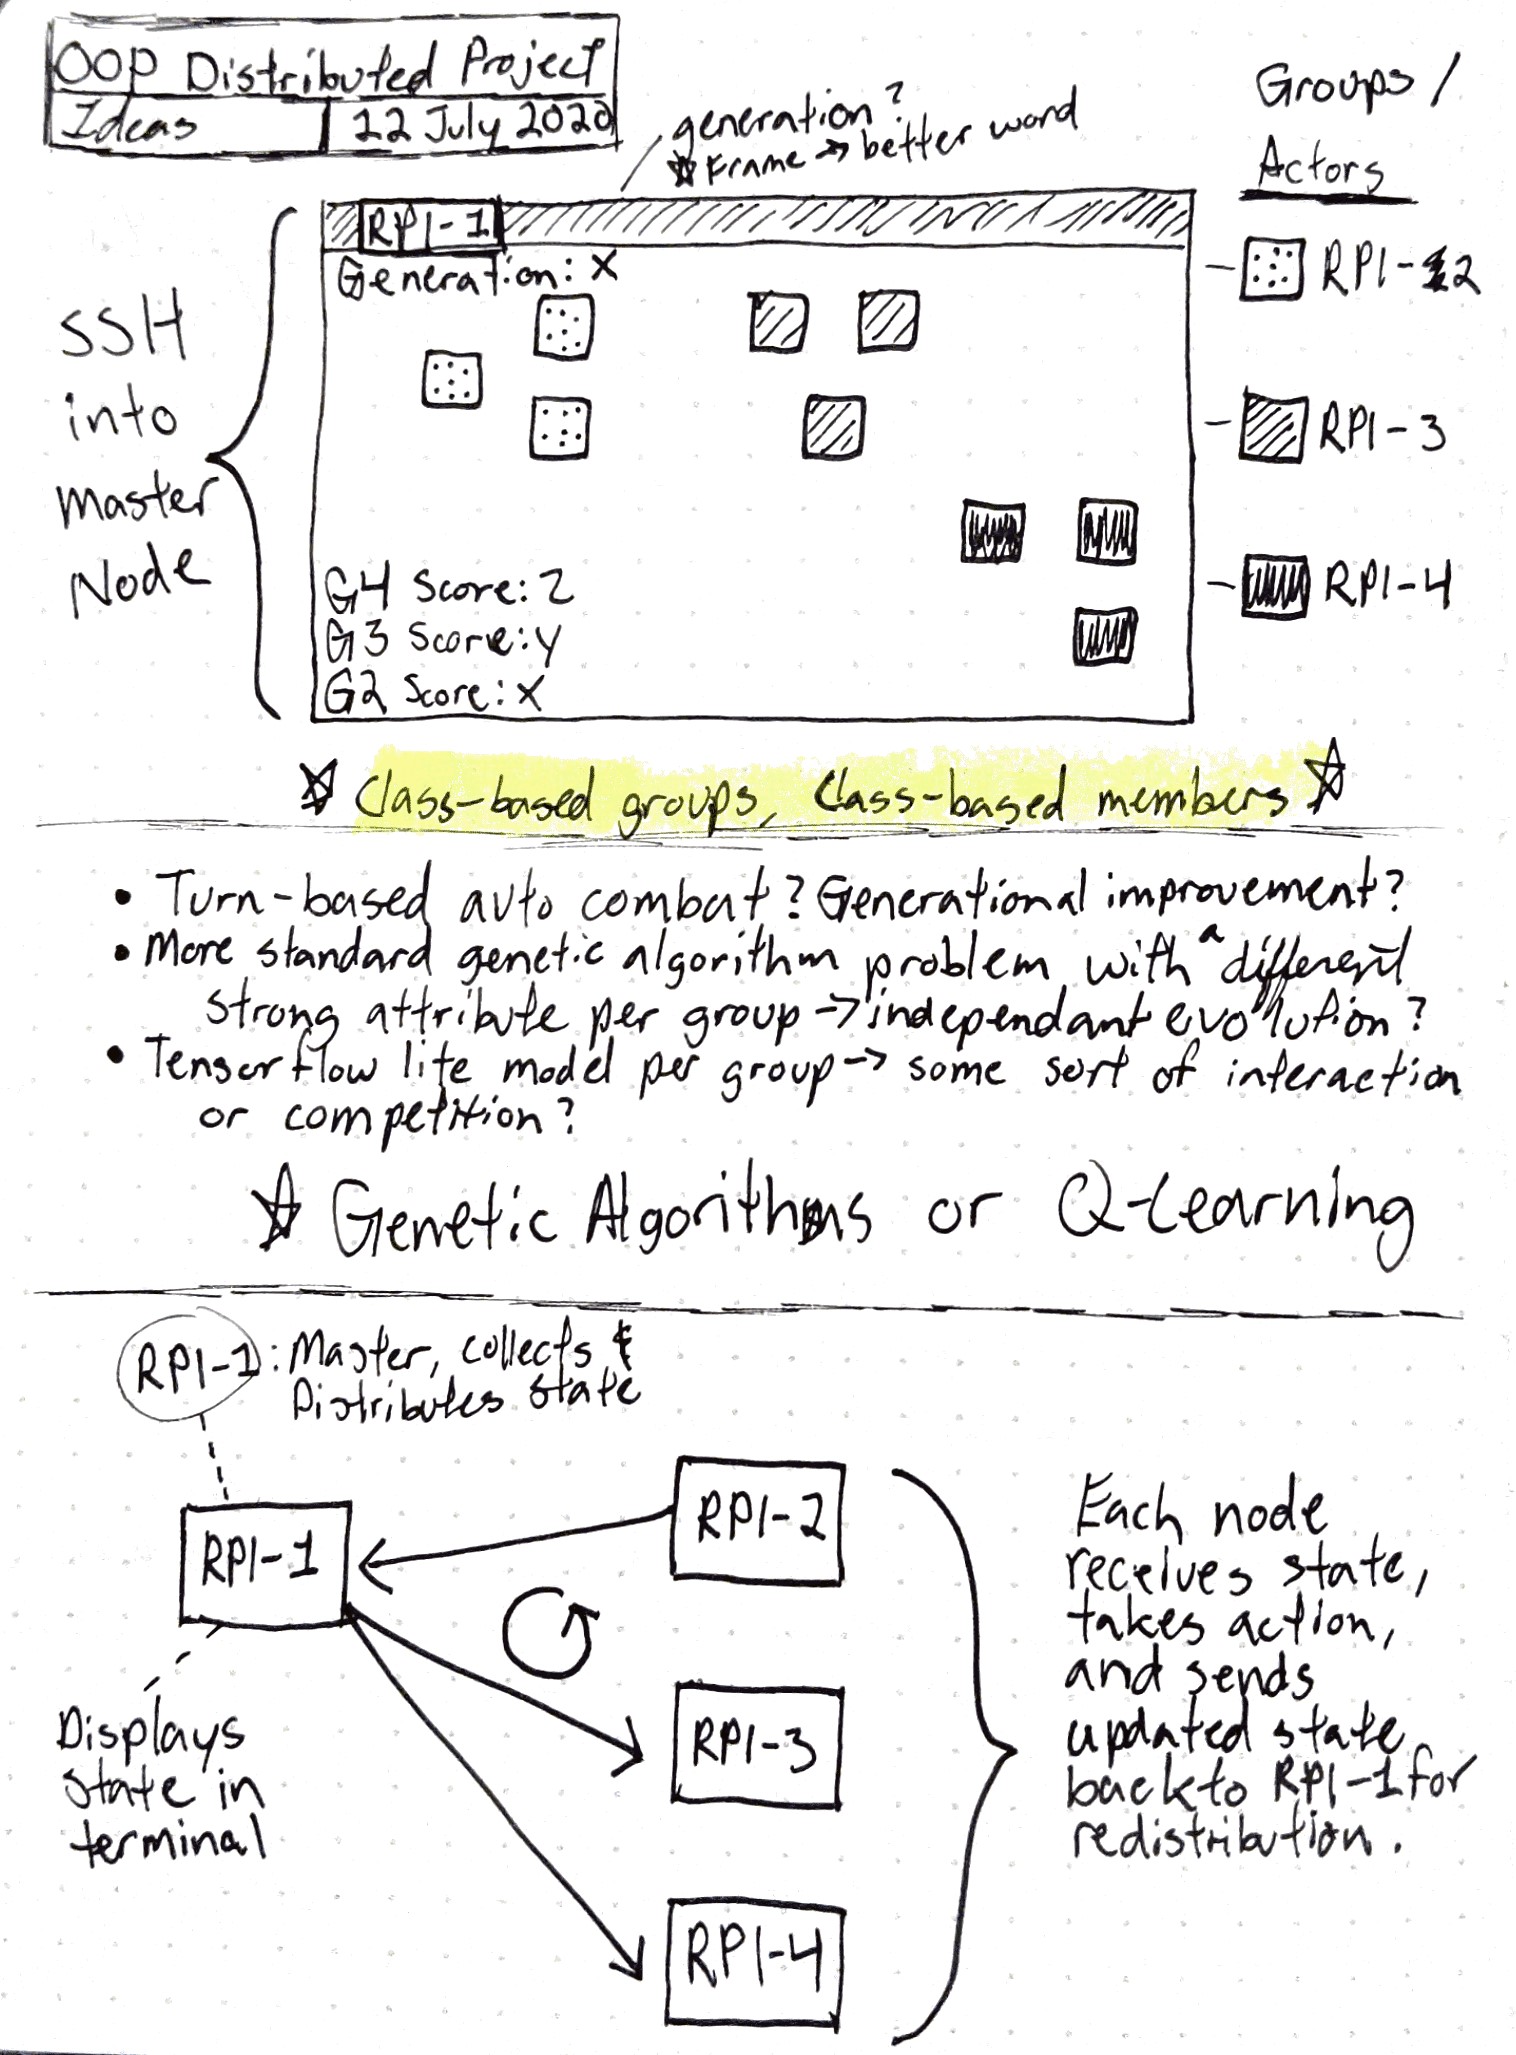 OOP Distributed Project
Ideas
22 July 2020
generation?
☆ Frame → better word
Groups /
Actors
RPI-1
Generation: X
RPI-2
RPI-3
RPI-4
SSH
into
Master
Node
G4 Score: Z
G3 Score: y
G2 Score: X
☆ Class-based groups, Class-based members ☆
• Turn-based auto combat? Generational improvement?
• More standard genetic algorithm problem with a different
strong attribute per group → independant evolution?
• Tensorflow lite model per group → some sort of interaction
or competition?
☆ Genetic Algorithms or Q-Learning
RPI-1: Master, collects &
Distributes state
RPI-1
RPI-2
RPI-3
RPI-4
Displays
state in
terminal
Each node
receives state,
takes action,
and sends
updated state
back to RPI-1 for
redistribution.